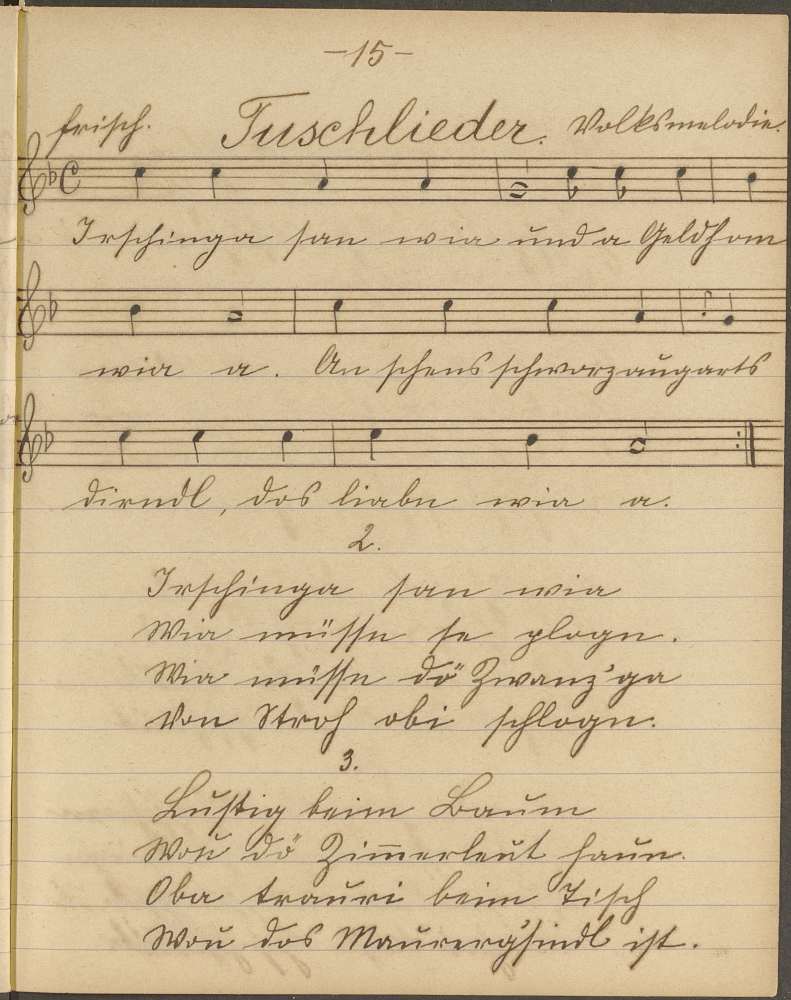 -15-
frisch. Tuschlieder. Volksmelodie.
Irschinga san wia und a Geldhom
wia a. An schens schworzaugats
dirndl, dos liabn wia a.
2.
Irschinga san wia
Wia müssn se plogn.
Wia müssn dö Zwanz'ga
Von Stroh obi schlogn.
3.
Lustig beim Baum
Wou dö Zimmerleut haun.
Oba trauri beim Tisch
Wou dos Maurerg'sindl ist.